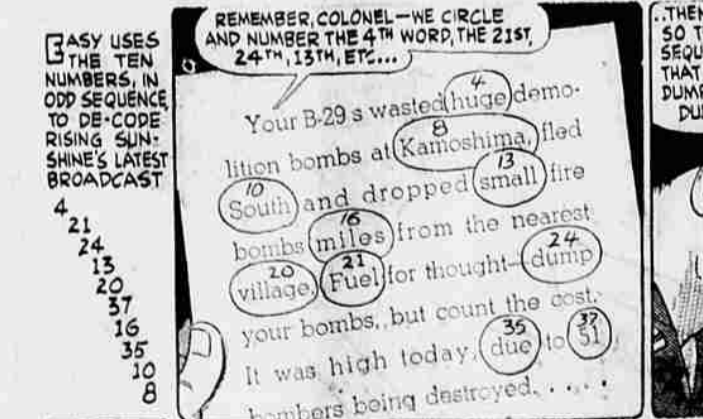 EASY USES
THE TEN
NUMBERS, IN
ODD SEQUENCE
TO DE-CODE
RISING SUN-
SHINE'S LATEST
BROADCAST
4
21
24
13
20
37
16
35
10
8
REMEMBER, COLONEL—WE CIRCLE
AND NUMBER THE 4TH WORD, THE 21ST,
24TH, 13TH, ETC...
4
Your B-29s wasted huge demo-
8
lition bombs at Kamoshima, fled
10 13
South and dropped small fire
16
bombs miles from the nearest
20 21 24
village. Fuel for thought—dump
your bombs, but count the cost.
35 37
It was high today, due to 51
bombers being destroyed. . . . .
..THEN
SO T
SEQU
THAT
DUMP
DU